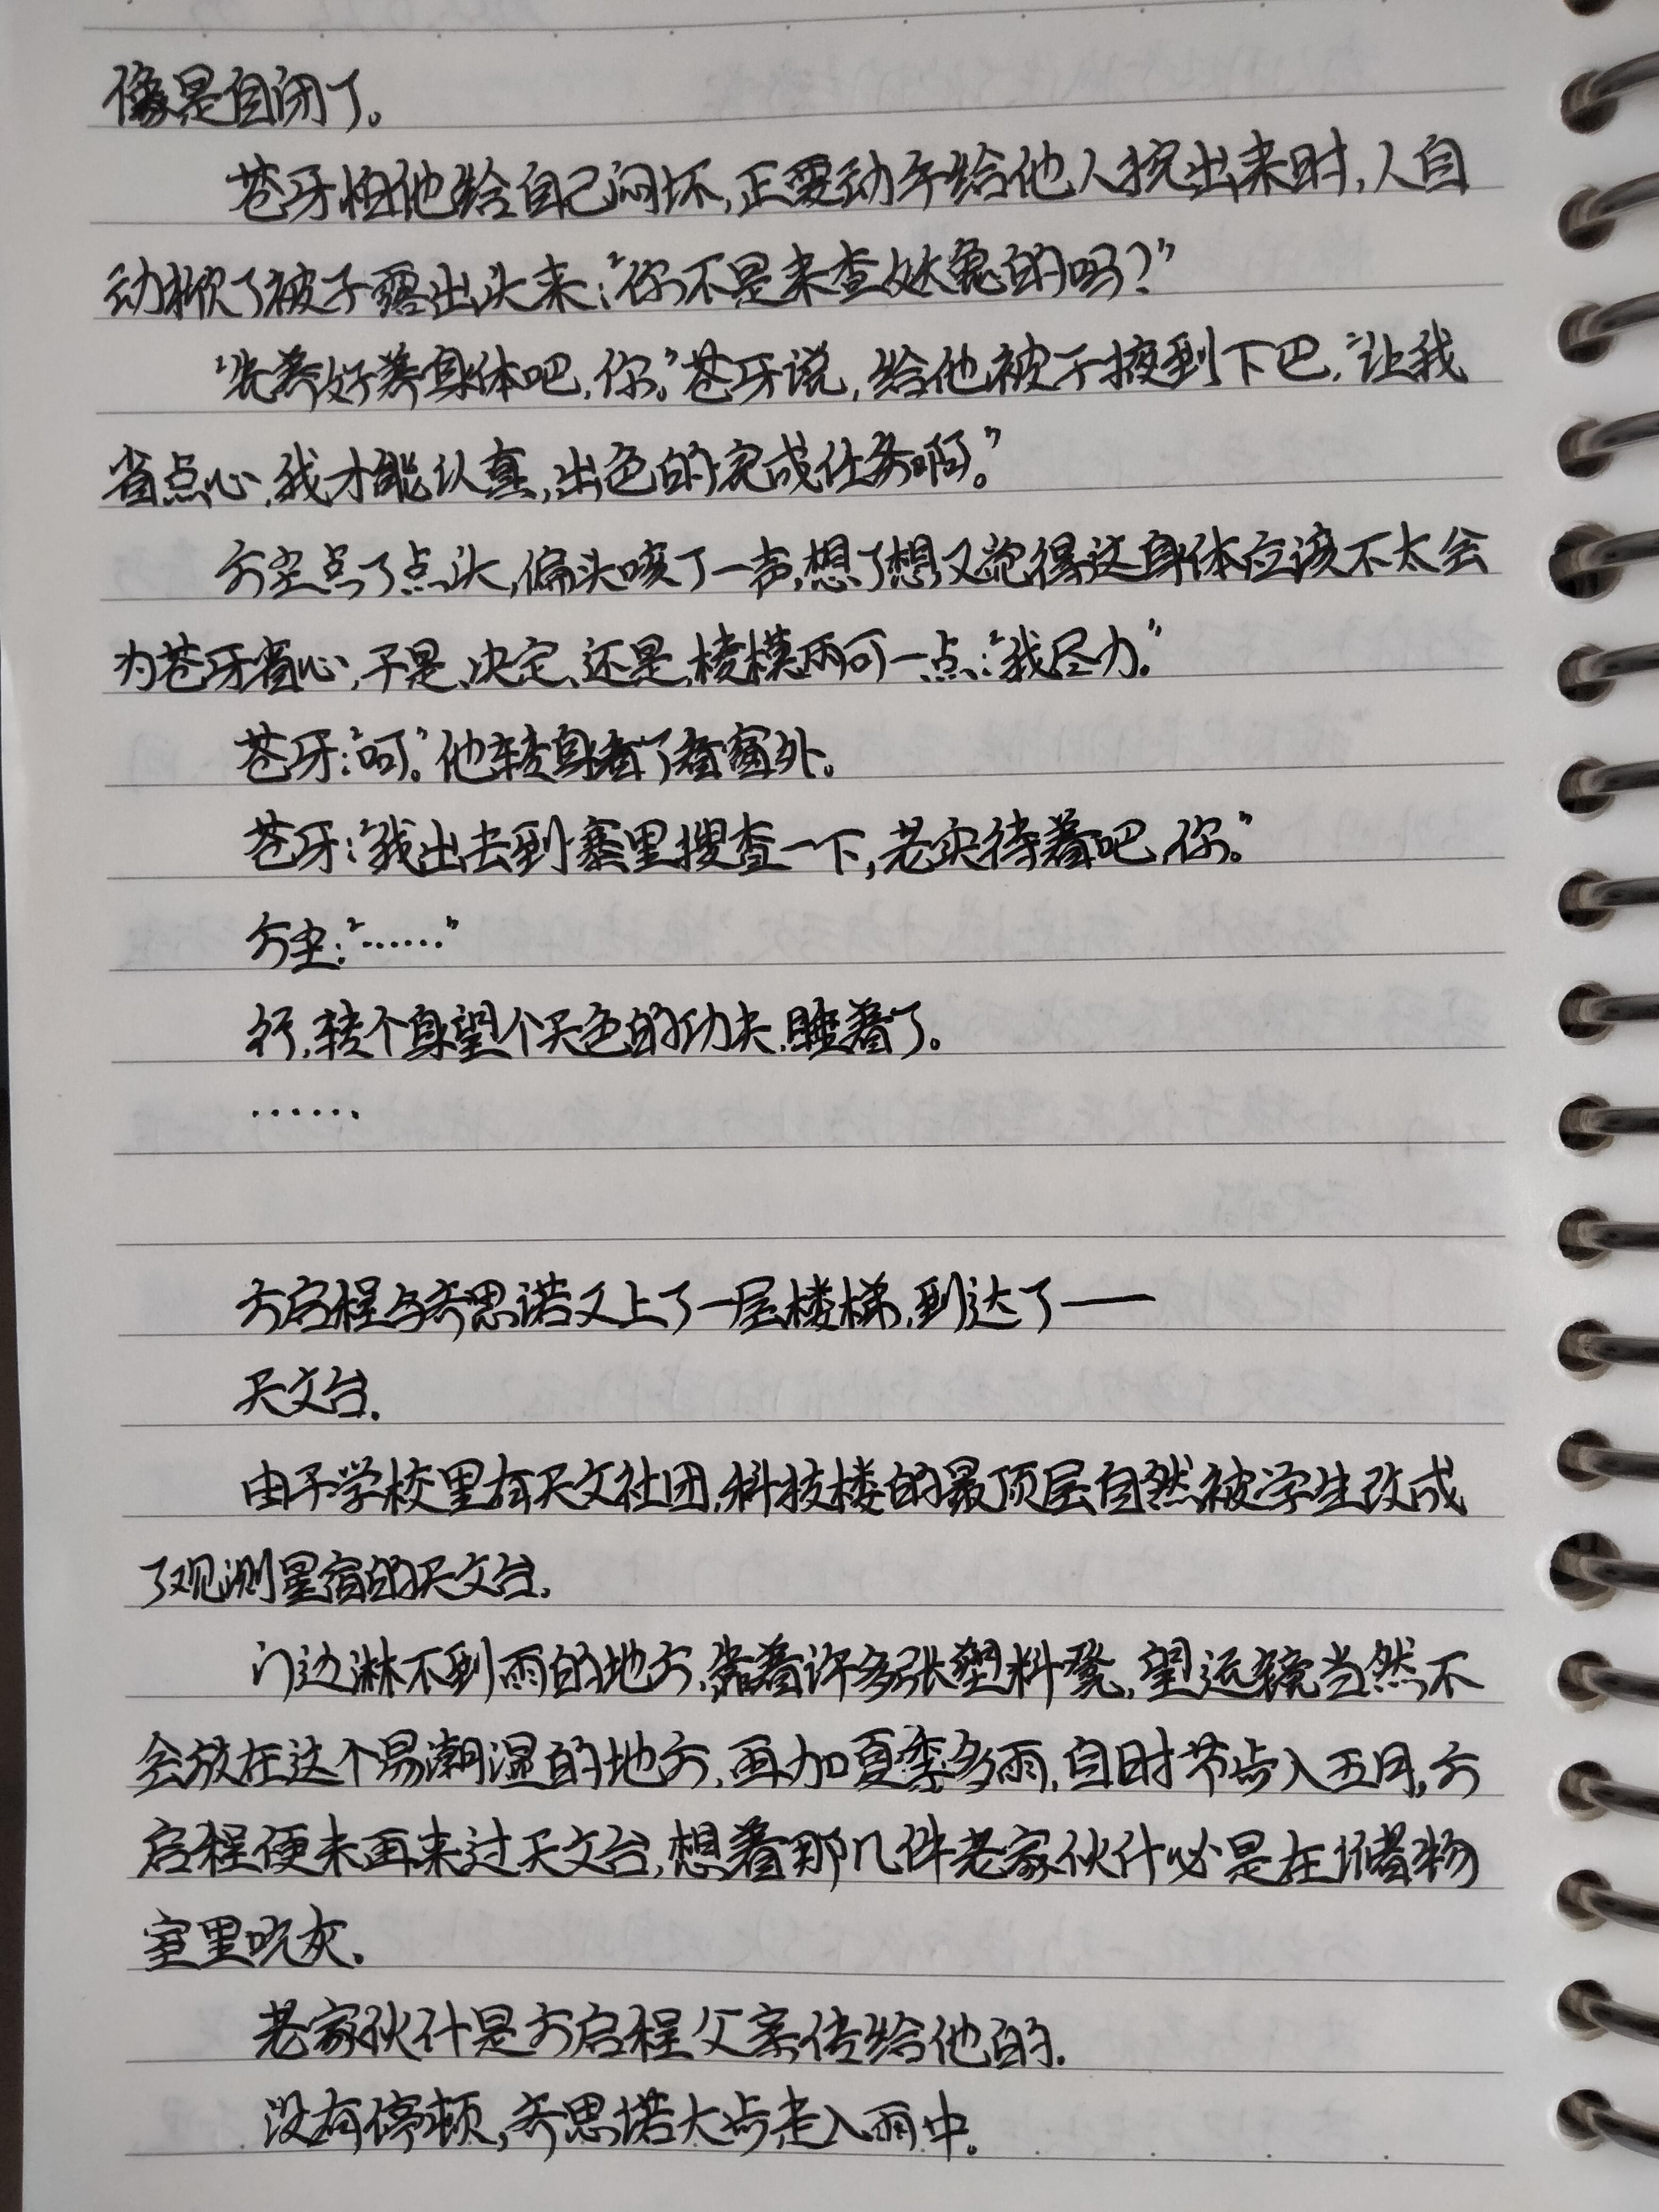 像是自闭了。
苍牙怕他给自己闷坏,正要动手给他人挖出来时,人自
动掀了被子露出头来:“你不是来查妖鬼的吗?”
“先养好养身体吧,你。”苍牙说,给他被子掖到下巴,“让我
省点心,我才能认真,出色的完成任务啊。”
方尘点了点头,偏头咳了一声,想了想,又觉得这身体应该不太会
为苍牙省心,于是、决定、还是,棱模两可一点:“我尽力。”
苍牙:“呵。”他转身看了看窗外。
苍牙:“我出去到寨里搜查一下,老实待着吧,你。”
方尘:“……”
行,转个身望个天色的功夫,睡着了。
……
方启程与乔思诺又上了一层楼梯,到达了——
天文台.
由于学校里有天文社团,科技楼的最顶层自然被学生改成
了观测星宿的天文台.
门边淋不到雨的地方,靠着许多张塑料凳,望远镜当然不
会放在这个易潮湿的地方,再加夏季多雨,自时节步入五月,方
启程便未再来过天文台,想着那几件老家伙什必是在储物
室里吃灰.
老家伙什是方启程父亲传给他的.
没有停顿,乔思诺大步走入雨中。